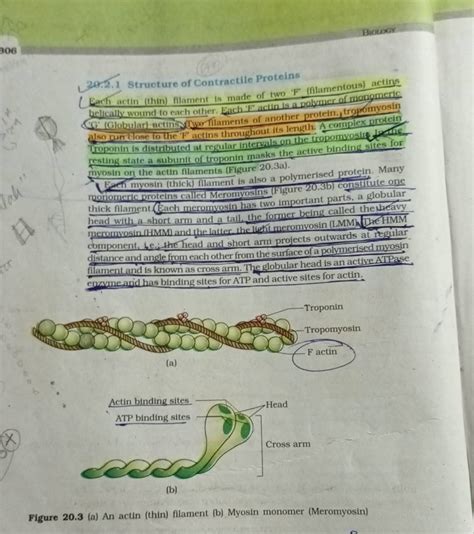 BIOLOGY
306
20.2.1 Structure of Contractile Proteins
Each actin (thin) filament is made of two 'F' (filamentous) actins
helically wound to each other. Each 'F' actin is a polymer of monomeric
'G' (Globular) actins. Two filaments of another protein, tropomyosin
also run close to the 'F' actins throughout its length. A complex protein
Troponin is distributed at regular intervals on the tropomyosin. In the
resting state a subunit of troponin masks the active binding sites for
myosin on the actin filaments (Figure 20.3a).
Each myosin (thick) filament is also a polymerised protein. Many
monomeric proteins called Meromyosins (Figure 20.3b) constitute one
thick filament. Each meromyosin has two important parts, a globular
head with a short arm and a tail, the former being called the heavy
meromyosin (HMM) and the latter, the light meromyosin (LMM). The HMM
component, i.e.; the head and short arm projects outwards at regular
distance and angle from each other from the surface of a polymerised myosin
filament and is known as cross arm. The globular head is an active ATPase
enzyme and has binding sites for ATP and active sites for actin.
Troponin
Tropomyosin
F actin
(a)
Actin binding sites
Head
ATP binding sites
Cross arm
(b)
Figure 20.3 (a) An actin (thin) filament (b) Myosin monomer (Meromyosin)